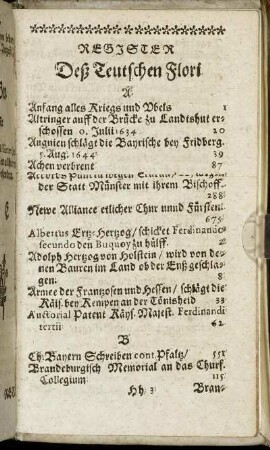 REGISTER
Deß Teutschen Flori
A
Anfang alles Kriegs und Vbels 1
Altringer auff der Brücke zu Landshut er-
schossen 0. Julii 1634 20
Anguien schlägt die Bayrische bey Fridberg.
Aug. 1644 39
Achen verbrent 87
der Statt Münster mit ihrem Bischoff.
288
Newe Alliance etlicher Chur unnd Fürsten.
675.
Albertus Ertz-Hertzog/ schicket Ferdinando
secundo den Buquoy zu hülff. 2.
Adolph Hertzog von Holstein / wird von de-
nen Bauren im Land ob der Enß geschla-
gen. 8.
Armee der Frantzosen und Hessen / schlägt die
Käis. bey Kempen an der Tönisheid 33
Auctorial Patent Käys. Majest. Ferdinandi
tertii 62
B
Ch. Bayern Schreiben cont. Pfaltz/ 551
Brandeburgisch Memorial an das Churf.
Collegium 115
Hh 3 Bran-